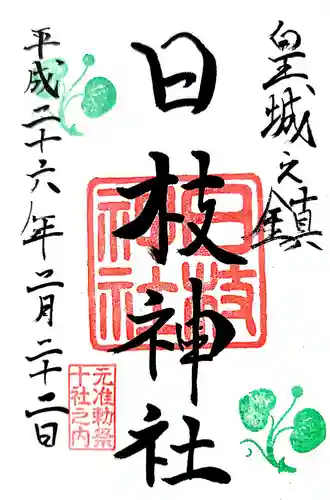 皇城之鎮
日枝神社
日枝神社
元准勅祭
十社之内
平成二十六年二月二十二日